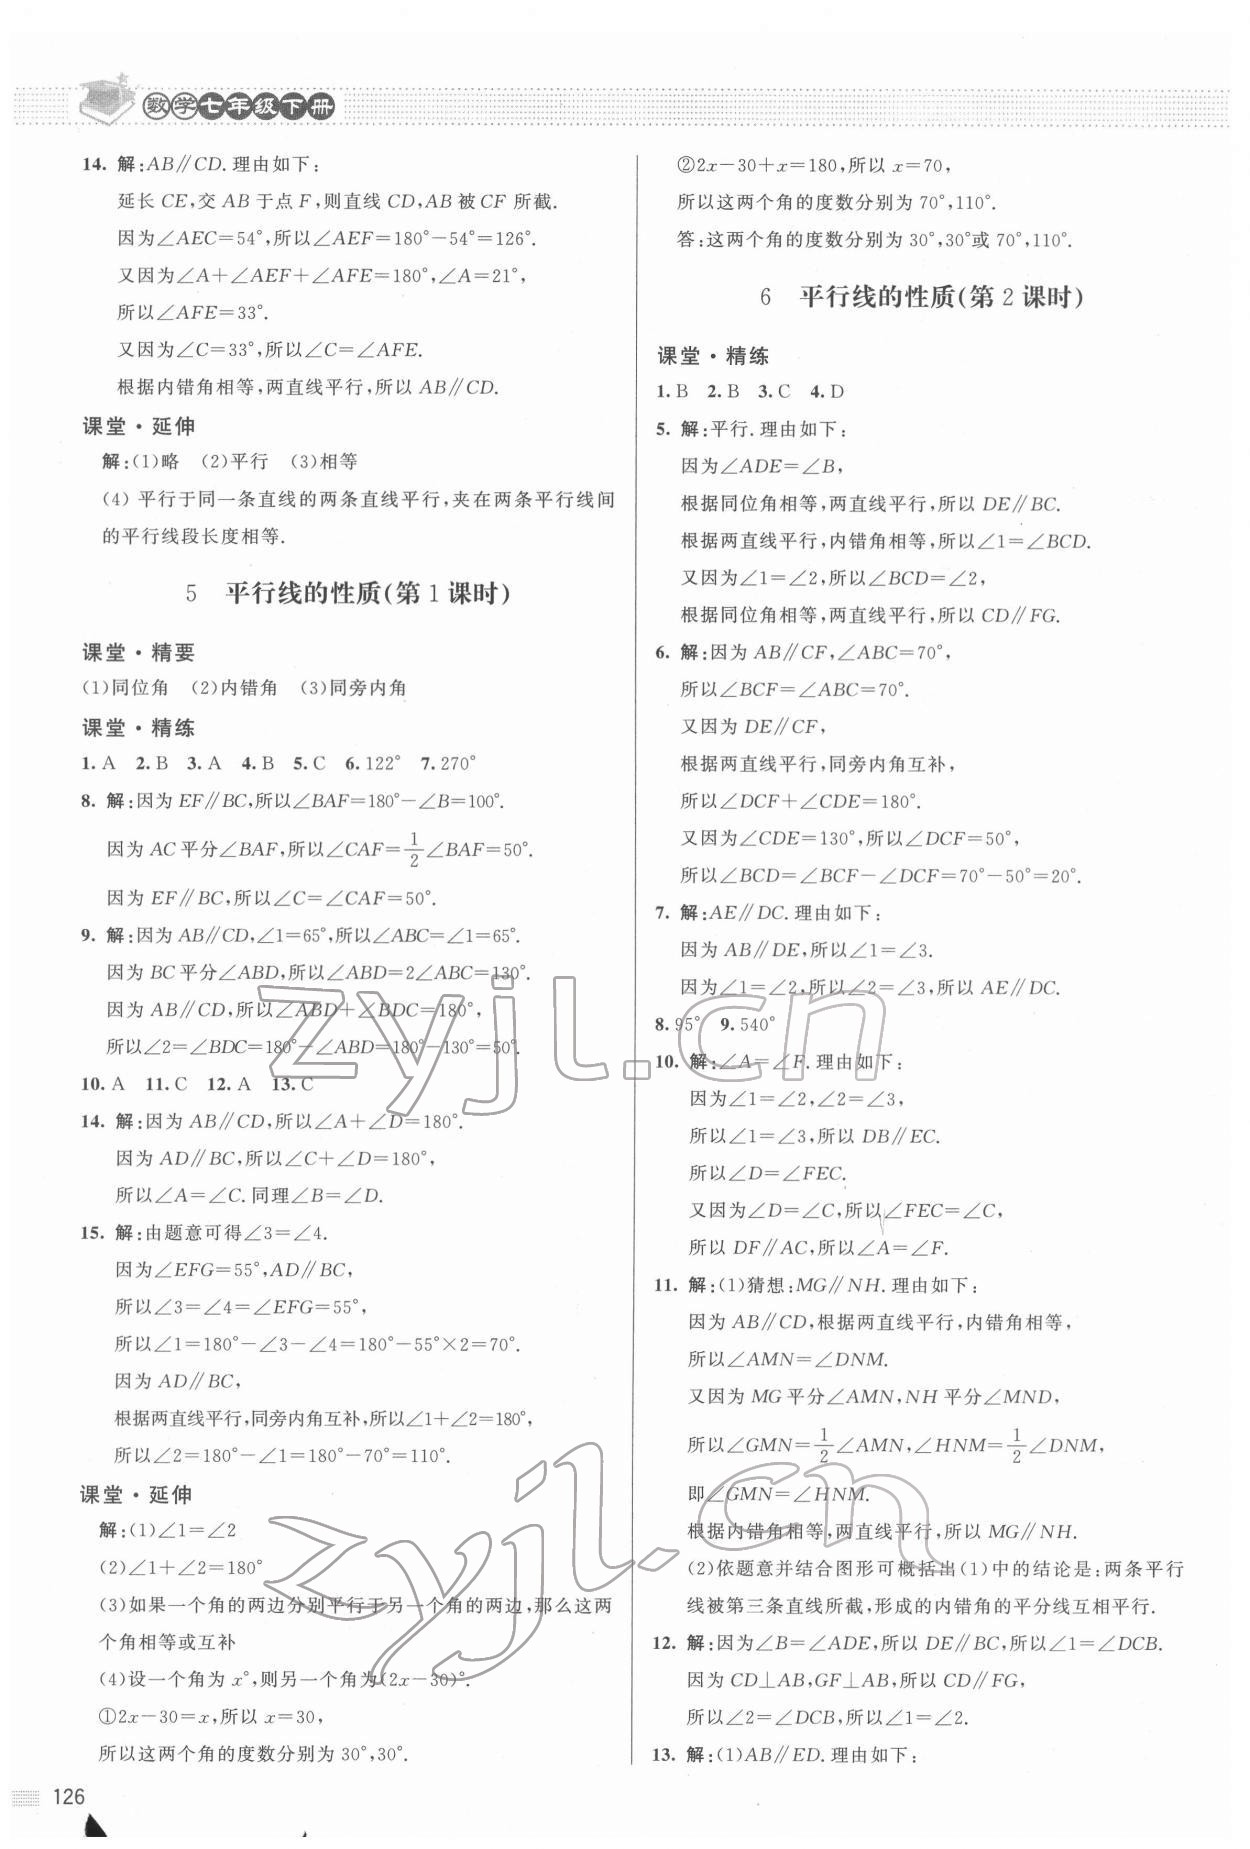 数学七年级下册
14. 解:AB∥CD.理由如下:
延长 CE,交 AB 于点 F,则直线 CD,AB 被 CF 所截.
因为∠AEC=54°,所以∠AEF=180°-54°=126°.
又因为∠A+∠AEF+∠AFE=180°,∠A=21°,
所以∠AFE=33°.
又因为∠C=33°,所以∠C=∠AFE.
根据内错角相等,两直线平行,所以 AB∥CD.
课堂·延伸
解:(1)略 (2)平行 (3)相等
(4) 平行于同一条直线的两条直线平行,夹在两条平行线间
的平行线段长度相等.
5 平行线的性质(第 1 课时)
课堂·精要
(1)同位角 (2)内错角 (3)同旁内角
课堂·精练
1. A 2. B 3. A 4. B 5. C 6. 122° 7. 270°
8. 解:因为 EF∥BC,所以∠BAF=180°-∠B=100°.
因为 AC 平分∠BAF,所以∠CAF=1/2∠BAF=50°.
因为 EF∥BC,所以∠C=∠CAF=50°.
9. 解:因为 AB∥CD,∠1=65°,所以∠ABC=∠1=65°.
因为 BC 平分∠ABD,所以∠ABD=2∠ABC=130°.
因为 AB∥CD,所以∠ABD+∠BDC=180°,
所以∠2=∠BDC=180°-∠ABD=180°-130°=50°.
10. A 11. C 12. A 13. C
14. 解:因为 AB∥CD,所以∠A+∠D=180°.
因为 AD∥BC,所以∠C+∠D=180°,
所以∠A=∠C.同理∠B=∠D.
15. 解:由题意可得∠3=∠4.
因为∠EFG=55°,AD∥BC,
所以∠3=∠4=∠EFG=55°,
所以∠1=180°-∠3-∠4=180°-55°×2=70°.
因为 AD∥BC,
根据两直线平行,同旁内角互补,所以∠1+∠2=180°,
所以∠2=180°-∠1=180°-70°=110°.
课堂·延伸
解:(1)∠1=∠2
(2)∠1+∠2=180°
(3)如果一个角的两边分别平行于另一个角的两边,那么这两
个角相等或互补
(4)设一个角为 x°,则另一个角为(2x-30)°.
①2x-30=x,所以 x=30,
所以这两个角的度数分别为 30°,30°.
126
②2x-30+x=180,所以 x=70,
所以这两个角的度数分别为 70°,110°.
答:这两个角的度数分别为 30°,30°或 70°,110°.
6 平行线的性质(第 2 课时)
课堂·精练
1. B 2. B 3. C 4. D
5. 解:平行.理由如下:
因为∠ADE=∠B,
根据同位角相等,两直线平行,所以 DE∥BC.
根据两直线平行,内错角相等,所以∠1=∠BCD.
又因为∠1=∠2,所以∠BCD=∠2,
根据同位角相等,两直线平行,所以 CD∥FG.
6. 解:因为 AB∥CF,∠ABC=70°,
所以∠BCF=∠ABC=70°.
又因为 DE∥CF,
根据两直线平行,同旁内角互补,
所以∠DCF+∠CDE=180°.
又因为∠CDE=130°,所以∠DCF=50°,
所以∠BCD=∠BCF-∠DCF=70°-50°=20°.
7. 解:AE∥DC.理由如下:
因为 AB∥DE,所以∠1=∠3.
因为∠1=∠2,所以∠2=∠3,所以 AE∥DC.
8. 95° 9. 540°
10. 解:∠A=∠F.理由如下:
因为∠1=∠2,∠2=∠3,
所以∠1=∠3,所以 DB∥EC.
所以∠D=∠FEC.
又因为∠D=∠C,所以∠FEC=∠C,
所以 DF∥AC,所以∠A=∠F.
11. 解:(1)猜想:MG∥NH.理由如下:
因为 AB∥CD,根据两直线平行,内错角相等,
所以∠AMN=∠DNM.
又因为 MG 平分∠AMN,NH 平分∠MND,
所以∠GMN=1/2∠AMN,∠HNM=1/2∠DNM,
即∠GMN=∠HNM.
根据内错角相等,两直线平行,所以 MG∥NH.
(2)依题意并结合图形可概括出(1)中的结论是:两条平行
线被第三条直线所截,形成的内错角的平分线互相平行.
12. 解:因为∠B=∠ADE,所以 DE∥BC,所以∠1=∠DCB.
因为 CD⊥AB,GF⊥AB,所以 CD∥FG,
所以∠2=∠DCB,所以∠1=∠2.
13. 解:(1)AB∥ED.理由如下:
zyjl.cn
zyjl.cn